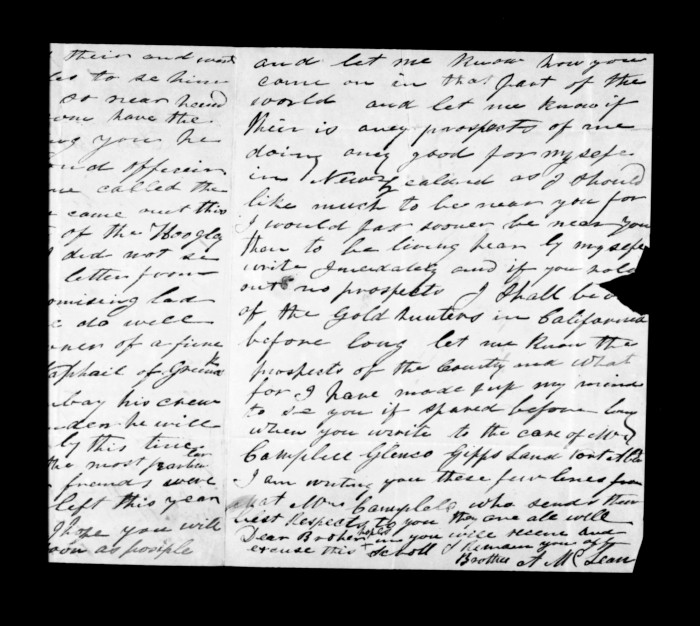 their and
to se him
so near
have the
you he
officers
called the
came out this
of the Hoogly
did not se
letter from
promising lad
do will
owner of a
of Greenock
his crew
he will
by this time
the most
friends were
left this year
I hope you will
soon as posiple
and let me know how you
come on in that part of the
world and let me know if
their is aney prospects of me
doing any good for my sefe
in New Zealand as I should
like much to be near you for
I would far sooner be near you
then to be living hear by my sefe
write Imedately and if you hold
out no prospects I shall be
of the Gold hunters in California
before long let me know the
prospects of the County and what
for I have made up my mind
to se you if spared before long
when you write to the care of Mr
Campbell Glenco Gipps Land
I am writing you these few lines from
that Mrs Campbels who sends their
best Respects to you they are all will
Dear Brother hoping you will receve and
excuse this Scroll I Remain your aff
Brother A McLean